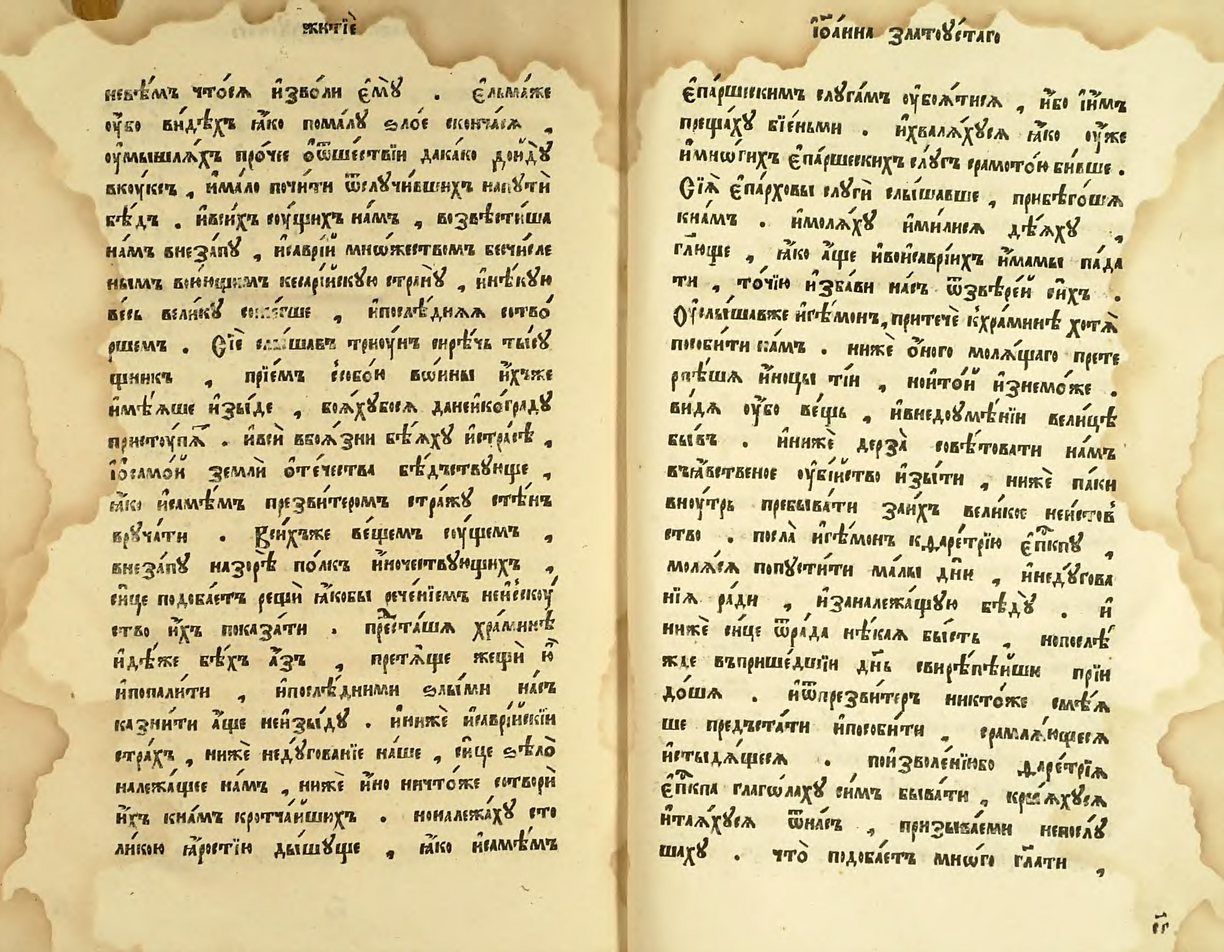 житїѐ
невѣ́мъ что́сѧ и҆зво́ли є҆мꙋ̀ . є҆льма́же
оу҆́бо ви́дѣхъ ꙗ҆́ко пома́лꙋ ѕло́е сконча́сѧ ,
оу҆мышлѧ́хъ про́чее ѻ҆ѿше́ствїи дака́ко до́йдꙋ
вкоу́ксъ , и҆ма́ло почи́ти ѿслꙋчи́вшихъ напꙋтѝ
бѣ́дъ . и҆всѝхъ соу́щихъ на́мъ , возвѣсти́ша
на́мъ внеза́пꙋ , и҆са́врїй мнѡ́жествомъ бесчи́сле
нымъ вою́ющимъ кесарі́йскꙋю странꙋ̀ , и҆нѣ́кꙋю
ве́сь вели́кꙋ сожегше , и҆послѣ́днѧѧ сотво́
ршемъ . Сїѐ слы́шавъ трноу́нъ си́рѣчь ты́сѧ
щникъ , прїе́мъ собо́ю во́ины и҆́хъже
и҆мѣ́ѧше и҆зы́де , боѧ́хꙋбосѧ дане́йкогра́дꙋ
пристоу́пѧ̑ . и҆всѝ вбоѧ́зни бѣ́ѧхꙋ и҆стра́сѣ ,
і҆ѡ҆само́й землѝ ѻ҆те́чества бѣ́дъствꙋюще ,
ꙗ҆́ко и҆самѣ́мъ презви́теромъ стра́жꙋ стѣ́нъ
врꙋча́ти . Всѝхъже ве́щемъ соу́щемъ ,
внеза́пꙋ назорѣ̀ по́лкъ и҆́ночествꙋющихъ ,
си́це подоба́етъ рещѝ ꙗ҆́кобы рече́нїемъ неи҆́скоу
ство и҆́хъ показа́ти . преⷭ҇та́шѧ хра́минѣ
и҆дѣ́же бѣ́хъ а҆́зъ , претѧ́ще жещѝ ю҆̀
и҆попали́ти , и҆послѣ́дними ѕлы́ми на́съ
казни́ти а҆́ще неи҆зы́дꙋ . и҆нижѐ и҆саврі́йскїи
стра́хъ , нижѐ недꙋ́гованїе на́ше , си́це ѕѣло̀
належа́щее на́мъ , нижѐ и҆́но ничто́же сотворѝ
и҆́хъ кна́мъ кротча́йшихъ . нонале́жахꙋ сто
ли́кою ꙗ҆́ростїю ды́шꙋще , ꙗ҆́ко и҆самѣ́мъ
і҆ѡа́нна златоꙋ́стагѡ
є҆па́ршескимъ слꙋга́мъ оу҆боѧ́тисѧ , и҆́бо і҆и҆́мъ
преща́хꙋ бїе́ньми . и҆хвалѧ́хꙋсѧ ꙗ҆́ко оу҆́же
и҆мнѡ́гихъ є҆па́ршескихъ слꙋ́гъ срамото́ю би́вше .
Сїѧ̀ є҆па́рховы слꙋгѝ слы́шавше , прибѣго́шѧ
кна́мъ . и҆молѧ́хꙋ и҆ми́лисѧ дѣ́ѧхꙋ ,
гл҃юще , ꙗ҆́ко а҆́ще и҆вои҆са́врїихъ и҆́мамы па́да
ти , то́чїю и҆зба́ви на́съ ѿзвѣре́й си́хъ .
Оу҆слы́шавже и҆ге́монъ, притечѐ кхра́минѣ хотѧ̀
пособи́ти на́мъ . нижѐ ѻ҆́ного молѧ́щаго прете
рпѣ́шѧ и҆́ноцы ті́и , нои҆то́й и҆знемо́же .
ви́дѧ оу҆́бо ве́щь , и҆внедоумѣ́нїи вели́цѣ
бы́въ . и҆нижѐ дерза̀ совѣ́товати на́мъ
въꙗ҆́вственое оу҆бі́йство и҆зы́ти , нижѐ па́ки
вноу́трь пребыва́ти заи҆́хъ вели́кое неи҆́стов
ство . посла̀ и҆ге́монъ кдаре́трїю є҆пⷭ҇кпꙋ ,
молѧ́сѧ попꙋсти́ти ма́лы дни̑ , и҆недꙋ́гова
нїѧ ра́ди , и҆занале́жащꙋю бѣдꙋ̀ . и҆
нижѐ си́це ѿра́да нѣ́каѧ бы́сть , нопослѣ́
жде въприше́дшїи дн҃ь свирѣпѣ́йши прїи
до́шѧ . и҆ѿпрезви́теръ никто́же смѣ́ѧ
ше предъста́ти и҆пособи́ти , срамлѧ́ющесѧ
и҆стыдѧ́щесѧ . поизволе́нїюбо даре́трїѧ
є҆пⷭ҇кпа глаго́лахꙋ си́мъ быва́ти , крыѧ́хꙋсѧ
и҆таѧ́хꙋсѧ ѿна́съ , призыва́еми непослꙋ́
шахꙋ . что̀ подоба́етъ мнѡ́го гл҃ати ,